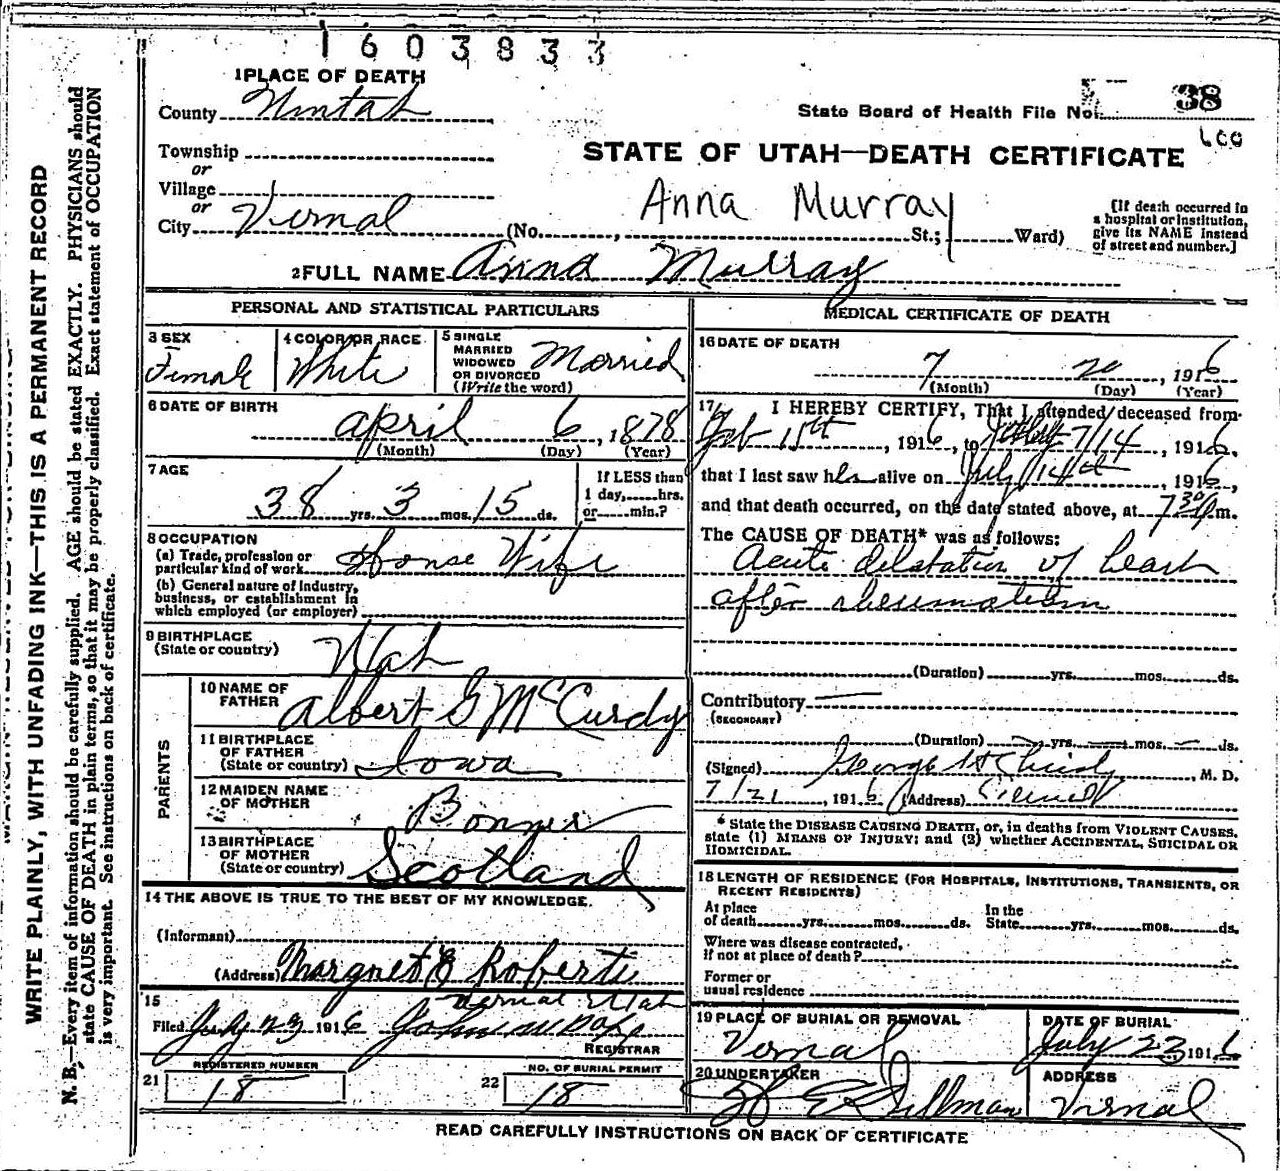 1603833
1 PLACE OF DEATH
County Uintah
State Board of Health File No. 38
600
Township
or
STATE OF UTAH—DEATH CERTIFICATE
Village
or
Anna Murray
City Vernal (No. , St.; Ward)
[If death occurred in
a hospital or institution,
give its NAME instead
of street and number.]
2 FULL NAME Anna Murray
PERSONAL AND STATISTICAL PARTICULARS
3 SEX
Female
4 COLOR OR RACE
White
5 SINGLE
MARRIED
WIDOWED
OR DIVORCED
(Write the word)
Married
6 DATE OF BIRTH
April 6, 1878
(Month) (Day) (Year)
7 AGE
38 yrs. 3 mos. 15 ds.
If LESS than
1 day, hrs.
or min.?
8 OCCUPATION
(a) Trade, profession or
particular kind of work House Wife
(b) General nature of industry,
business, or establishment in
which employed (or employer)
9 BIRTHPLACE
(State or country) Utah
PARENTS
10 NAME OF
FATHER Albert G McCurdy
11 BIRTHPLACE
OF FATHER
(State or country) Iowa
12 MAIDEN NAME
OF MOTHER Bonner
13 BIRTHPLACE
OF MOTHER
(State or country) Scotland
14 THE ABOVE IS TRUE TO THE BEST OF MY KNOWLEDGE.
(Informant)
(Address) Margret E Roberts
Vernal Utah
15
Filed July 23 1916 John W
REGISTRAR
REGISTERED NUMBER
21 18
NO. OF BURIAL PERMIT
22 18
MEDICAL CERTIFICATE OF DEATH
16 DATE OF DEATH
7 20, 1916
(Month) (Day) (Year)
17 I HEREBY CERTIFY, That I attended deceased from
Feb 15th, 1916, to 7/14, 1916,
that I last saw her alive on July 14th, 1916,
and that death occurred, on the date stated above, at 7 30 p m.
The CAUSE OF DEATH* was as follows:
Acute dilatation of heart
after rheumatism
(Duration) yrs. mos. ds.
Contributory
(SECONDARY)
(Duration) yrs. mos. ds.
(Signed) George H Christy, M. D.
7/21, 1916 (Address) Vernal
* State the DISEASE CAUSING DEATH, or, in deaths from VIOLENT CAUSES,
state (1) MEANS OF INJURY; and (2) whether ACCIDENTAL, SUICIDAL OR
HOMICIDAL.
18 LENGTH OF RESIDENCE (FOR HOSPITALS, INSTITUTIONS, TRANSIENTS, OR
RECENT RESIDENTS)
At place
of death yrs. mos. ds.
In the
State yrs. mos. ds.
Where was disease contracted,
If not at place of death?
Former or
usual residence
19 PLACE OF BURIAL OR REMOVAL
Vernal
DATE OF BURIAL
July 23 1916
20 UNDERTAKER
ADDRESS
Vernal
READ CAREFULLY INSTRUCTIONS ON BACK OF CERTIFICATE
WRITE PLAINLY, WITH UNFADING INK—THIS IS A PERMANENT RECORD
N. B.—Every item of information should be carefully supplied. AGE should be stated EXACTLY. PHYSICIANS should
state CAUSE OF DEATH in plain terms, so that it may be properly classified. Exact statement of OCCUPATION
is very important. See instructions on back of certificate.